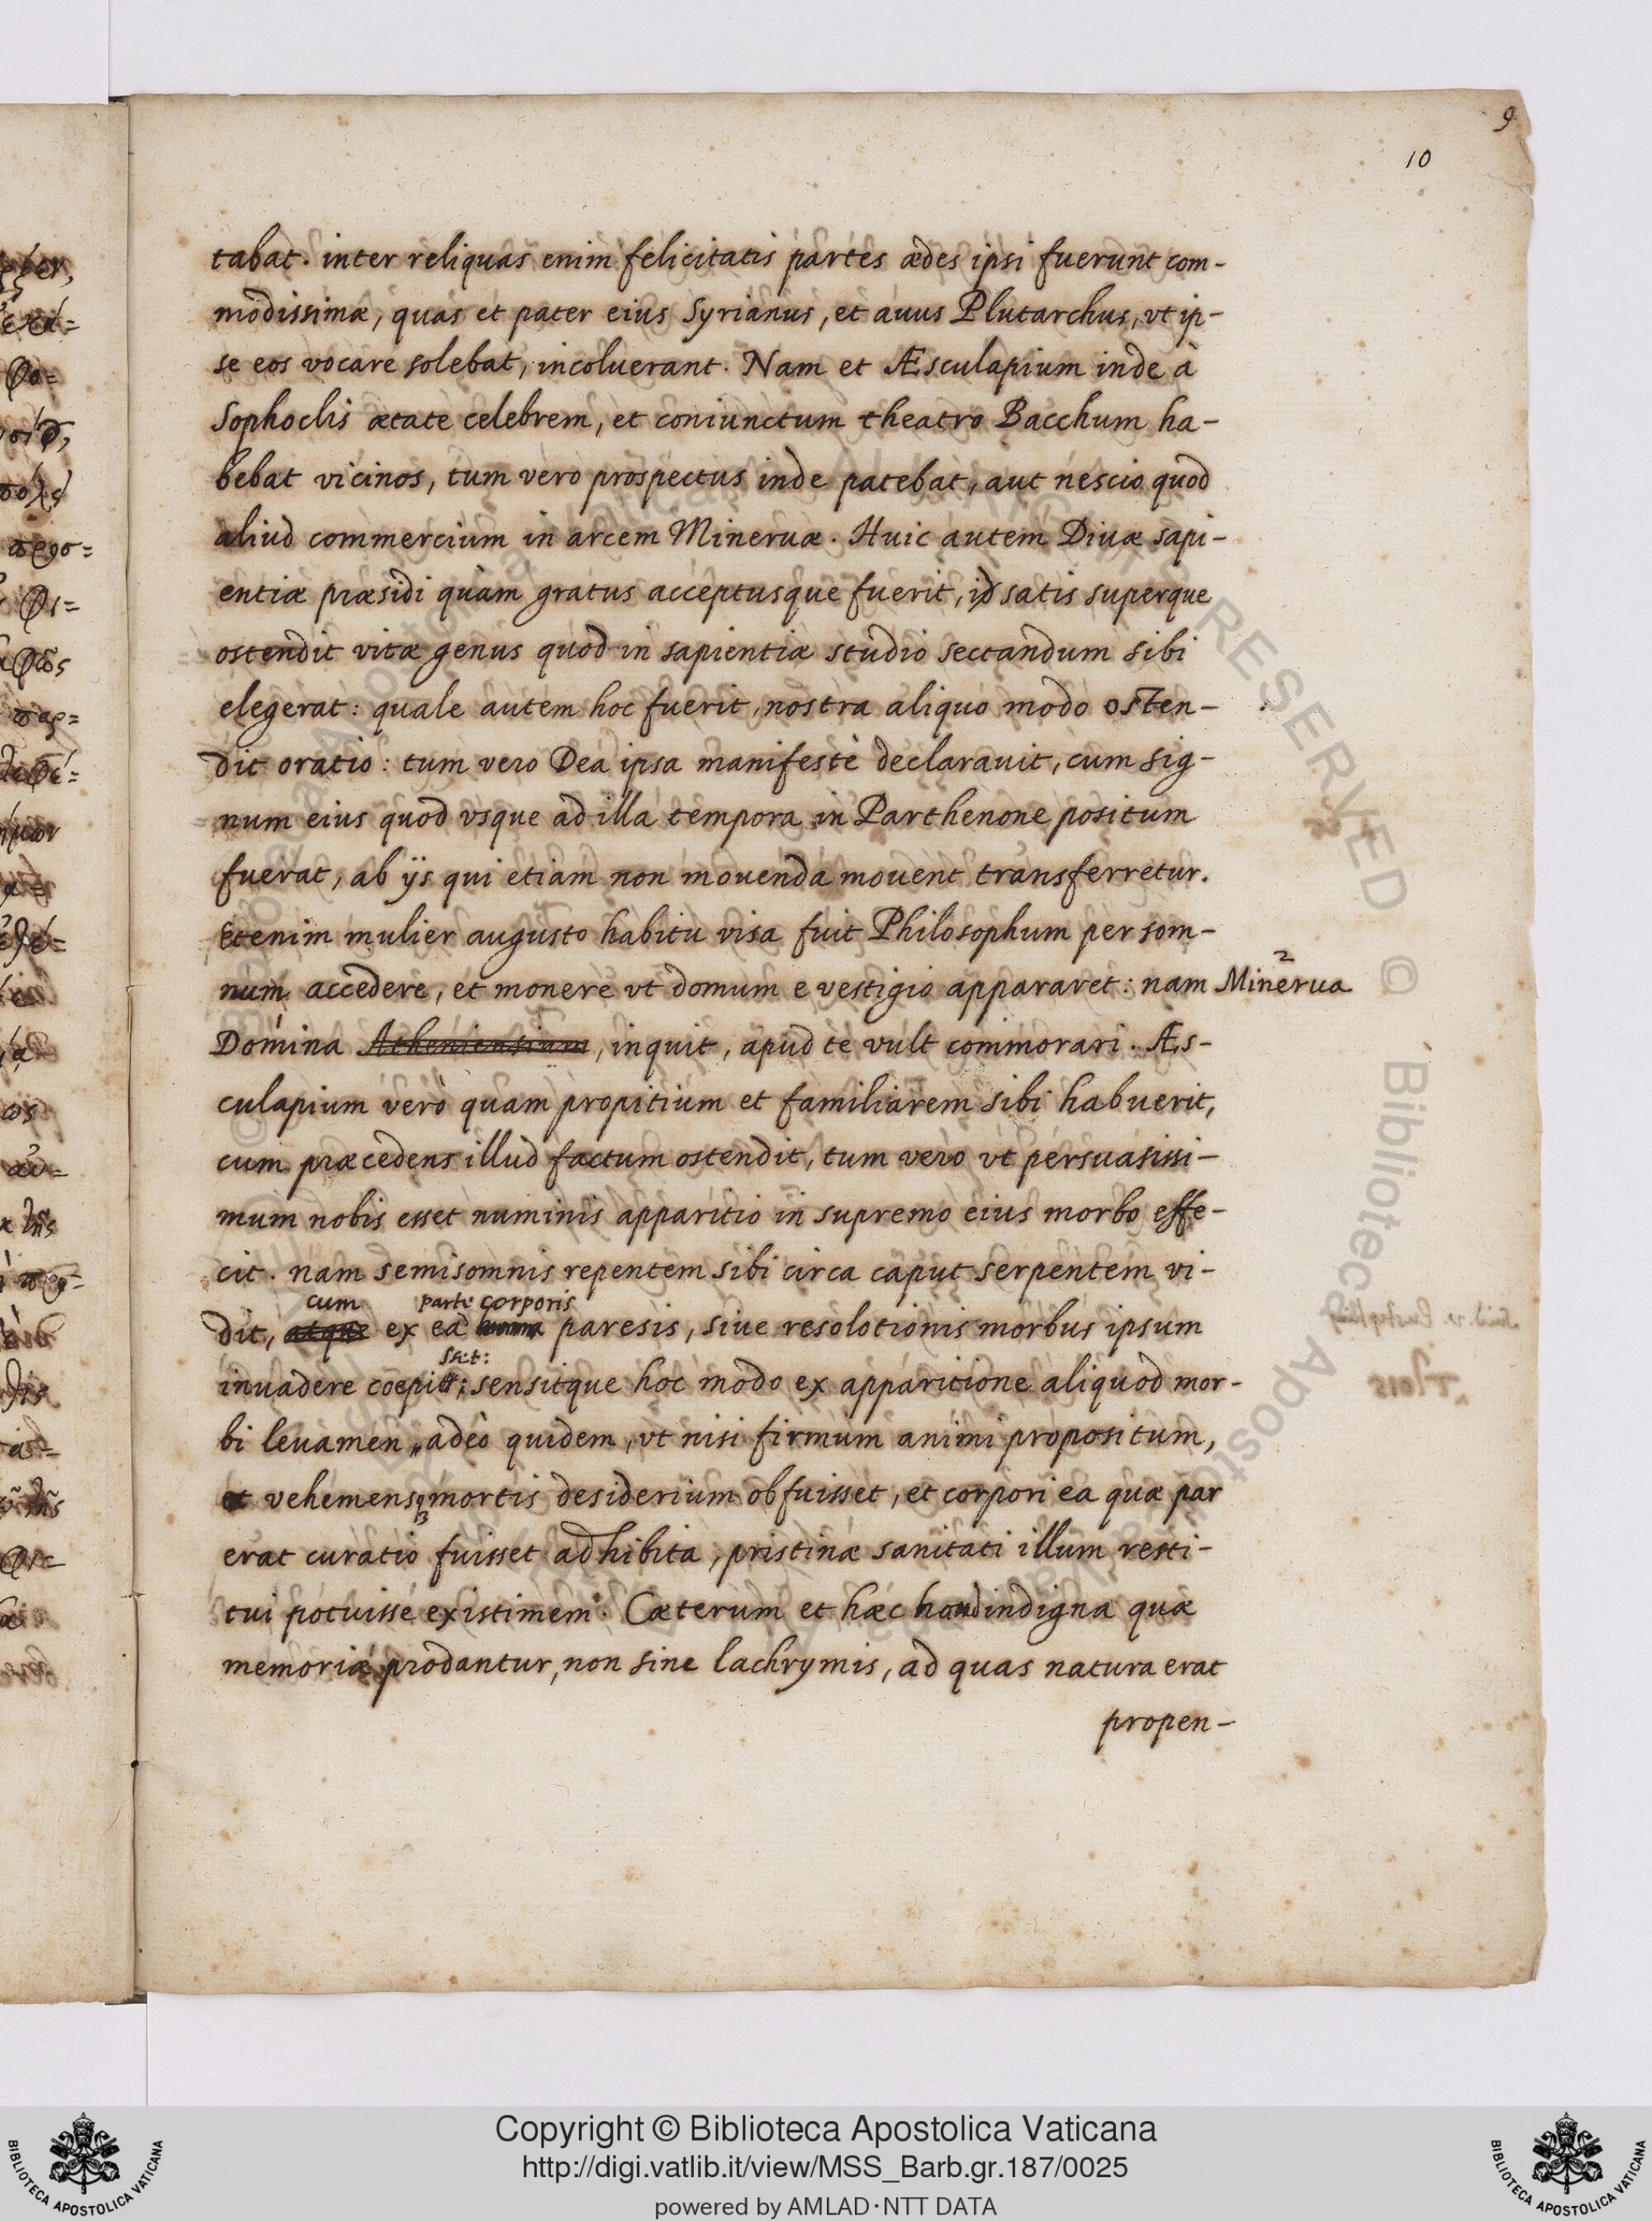 9
10
tabat. inter reliquas enim felicitatis partes ædes ipsi fuerunt com-
modissimæ, quas et pater eius Syrianus, et auus Plutarchus, vt ip-
se eos vocare solebat, incoluerant. Nam et Æsculapium inde à
Sophoclis ætate celebrem, et coniunctum theatro Bacchum ha-
bebat vicinos, tum vero prospectus inde patebat, aut nescio quod
aliud commercium in arcem Mineruæ. Huic autem Diuæ sapi-
entiæ præsidi quàm gratus acceptusque fuerit, id satis superque
ostendit vitæ genus quod in sapientiæ studio sectandum sibi
elegerat: quale autem hoc fuerit, nostra aliquo modo osten-
dit oratio: tum vero Dea ipsa manifestè declarauit, cum sig-
num eius quod vsque ad illa tempora in Parthenone positum
fuerat, ab ijs qui etiam non mouenda mouent transferretur.
Etenim mulier augusto habitu visa fuit Philosophum per som-
num accedere, et monere vt domum e vestigio appararet: nam Minerua
2
Domina Atheniensium, inquit, apud te vult commorari. Æs-
culapium verò quam propitium et familiarem sibi habuerit,
cum præcedens illud factum ostendit, tum vero vt persuasissi-
mum nobis esset numinis apparitio in supremo eius morbo effe-
cit. nam semisomnis repentem sibi circa caput serpentem vi-
cum parte corporis
dit, atque ex ea paresis, siue resolotionis morbus ipsum
inuadere coepit; sensitque hoc modo ex apparitione aliquod mor-
bi leuamen, adeò quidem, vt nisi firmum animi propositum,
et vehemensq3 mortis desiderium obfuisset, et corpori ea quæ par
erat curatio fuisset adhibita, pristinæ sanitati illum resti-
tui potuisse existimem. Cæterum et hæc haud indigna quæ
memoriæ prodantur, non sine lachrymis, ad quas natura erat
propen-
Copyright © Biblioteca Apostolica Vaticana
http://digi.vatlib.it/view/MSS_Barb.gr.187/0025
powered by AMLAD·NTT DATA
BIBLIOTECA APOSTOLICA VATICANA
BIBLIOTECA APOSTOLICA VATICANA